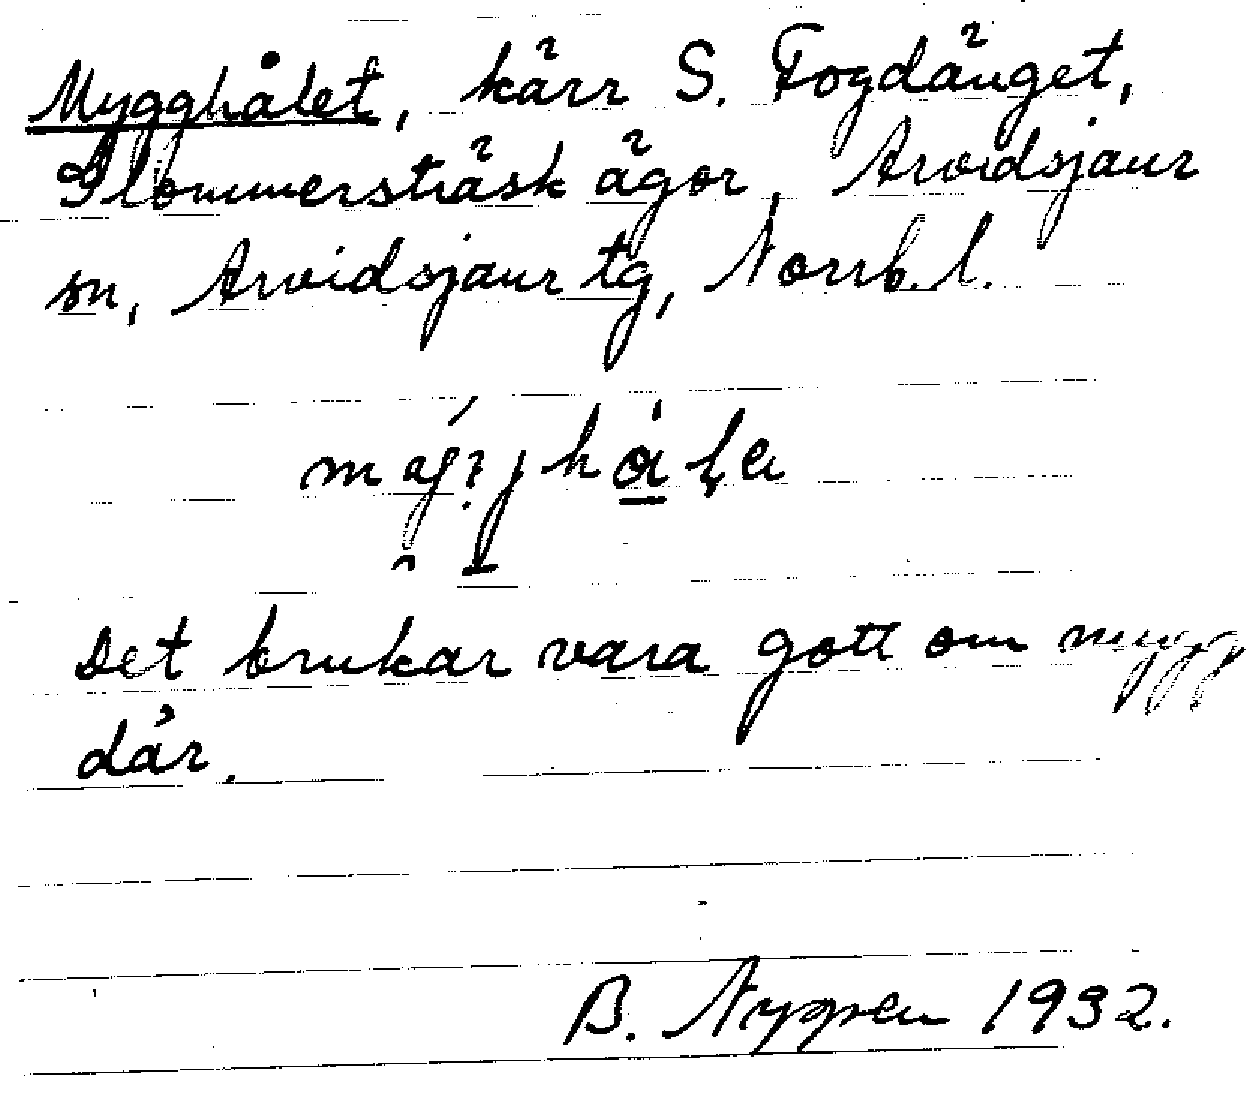 Mygghålet, kärr S. Fogdänget,
Glommersträsk ägor, Arvidsjaur
sn, Arvidsjaur tg, Norrb. l.
Det brukar vara gott om mygg
där.
B. Nygren 1932.